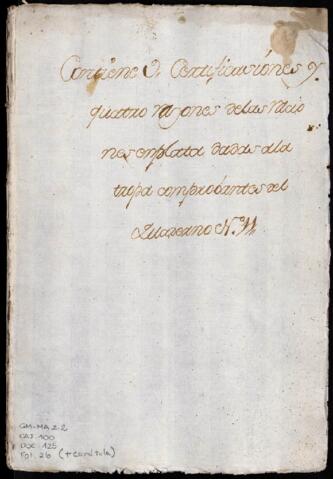 Contiene 9, Certificaciónes y
quatro razones de las racio
nes en plata dadas a la
tropa comprobantes del
Quaderno N.º 11
GM-MA 2-2
CAJ. 100
DOC. 125
Fol. 26 (+ carátula)